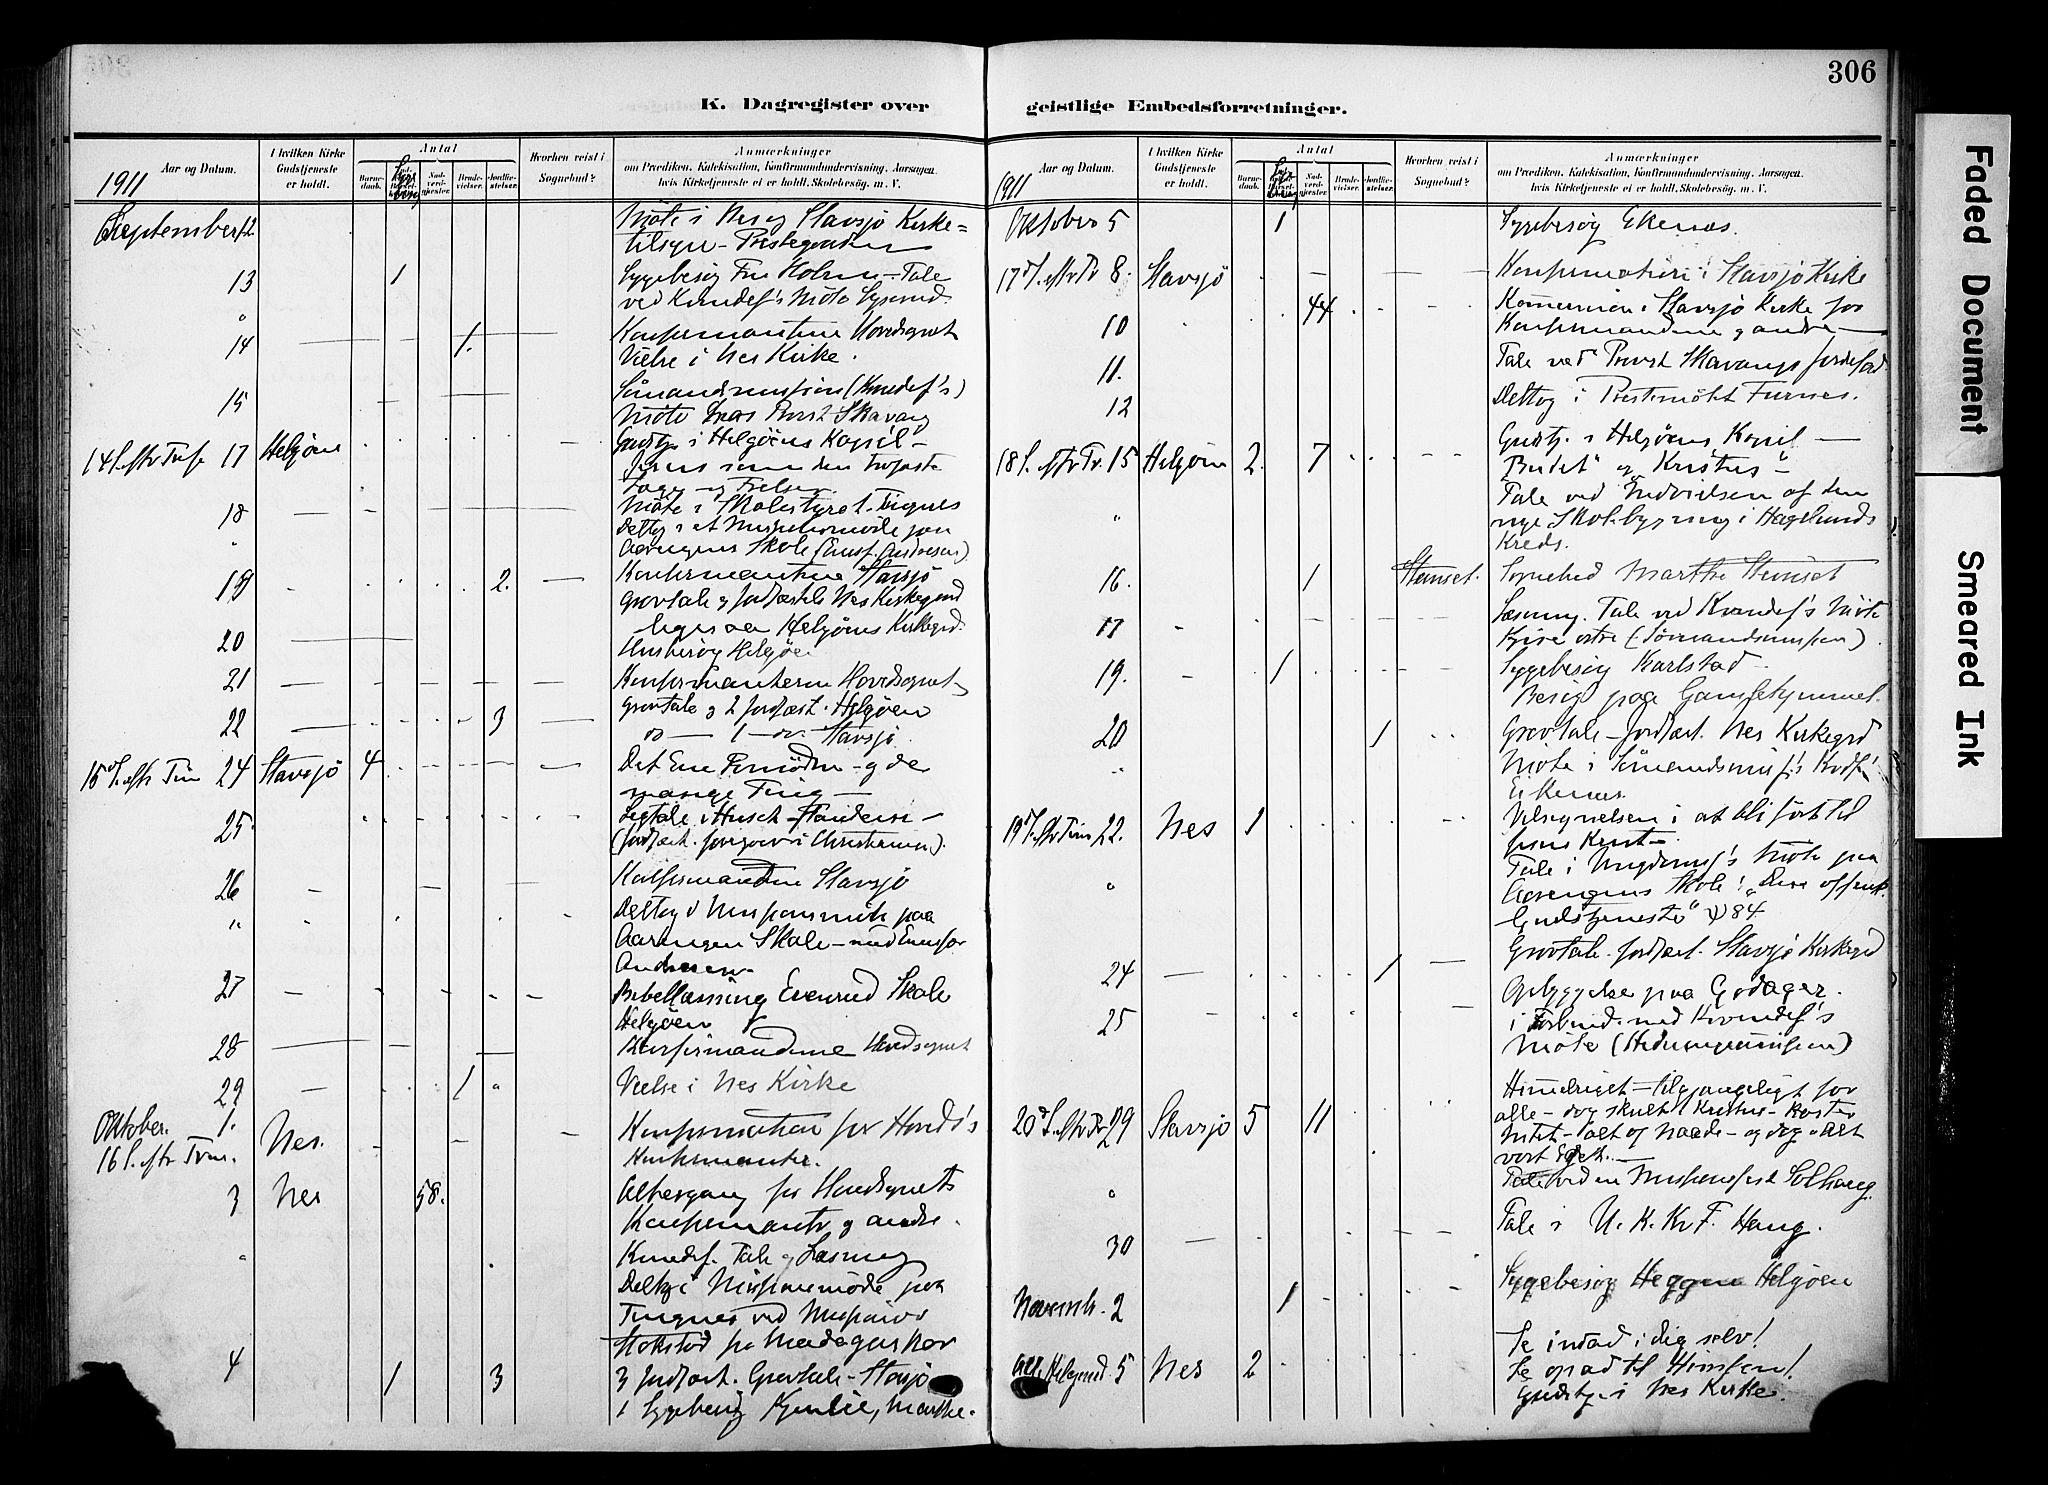 306
K. Dagregister over geistlige Embedsforretninger.
Aar og Datum.
I hvilken Kirke Gudstjeneste er holdt.
Antal
Barne-daab.
Nad-verd-gjester.
Brude-vielser.
Jordfæ-stelser.
Hvorhen reist i Sognebud?
Anmærkninger
om Prædiken, Katekisation, Konfirmandundervisning, Aarsagen,
hvis Kirketjeneste ei er holdt, Skolebesøg m. V.
1911
September 12 Møte i Nes og Stavsjø Kirke=
tilsyn - Prestegaarden
13 1 Sygebesøg Fru Holm - Tale
ved Kvindef's Møte
" 
14 1. Konfirmanterne Hovedsognet
Vielse i Nes Kirke.
15 Sømandsmission (Kvindef's)
Møte hos Provst Skavang
14 S. eftr Tref. 17 Helgøen Gudstj. i Helgøens Kapel -
Jesus som den trofaste
Læge og Frelser
18 Møte i Skolestyret. Tingnes
" Deltog i et Missionsmøde paa
Aarengens Skole (Emisf. Andresen)
19 2. Konfirmanterne Stavsjø
Gravtale & Jordfæstelse Nes Kirkegaard
ligesaa Helgøens Kirkegrd.
20 Husbesøg Helgøen
21 Konfirmanterne Hovedsognet
22 3 Gravtale & 2 Jordfæst. Helgøen
do — 1 — do. Stavsjø
15 S. eftr Trin 24 Stavsjø 4 Det Ene Fornødne - og de
mange Ting —
25. Ligtale i Huset
(Jordfæst. foregaar i Christiania).
26 Konfirmanderne Stavsjø
" Deltog i Missionsmøte paa
Aarengen Skole - med Emissær
Andresen
27 Bibellæsning Evenrud Skole
Helgøen
28 Konfirmanderne Hovedsognet
29 1 Vielse i Nes Kirke
Oktober. 1.
16 S. eftr Trin. Nes. Konfirmation for Hoveds's
Konfirmanter.
3 Nes 58. Altergang for Hovedsognets
Konfirmanter og andre.
" Kvindef. Tale og Læsning
Deltog i Missionsmøde paa
Tingnes ved Missionær
Stokstad fra Madagaskar
4 1 3 3 Jordfæst. Gravtale - Stavsjø
1 Sygebesøg Marthe.
Aar og Datum.
I hvilken Kirke Gudstjeneste er holdt.
Antal
Barne-daab.
Nad-verd-gjester.
Brude-vielser.
Jordfæ-stelser.
Hvorhen reist i Sognebud?
Anmærkninger
om Prædiken, Katekisation, Konfirmandundervisning, Aarsagen,
hvis Kirketjeneste ei er holdt, Skolebesøg m. V.
1911
Oktober 5 1 Sygebesøg Ekenæs.
17 S. eftr Tr 8. Stavsjø Konfirmation i Stavsjø Kirke
10 44 Kommunion i Stavsjø Kirke for
Konfirmanderne og andre —
11. Tale ved Provst Skavangs Jordefærd
12 Deltog i Prestemøtet Furnes.
18 S. eftr Tr. 15 Helgøen 2. 7 Gudstj. i Helgøens Kapel —
"Budet" og "Kristus"
" Tale ved Indvielsen af den
nye Skolebygning i Hagelunds
Kreds.
16. 1 Stenset. Sognebud Marthe Stenset
17 Læsning. Tale ved Kvindef's Møte
Kjise østre (Sømandsmission).
19. 1 Sygebesøg Karlstad
Besøg paa Gamlehjemmet.
20 1 Gravtale - Jordfæst. Nes Kirkegrd
" Møte i Sømandsmis.'s Kvdf.
Ekenæs.
19 S. eftr Trin 22. Nes 1 Velsignelsen i at bli ført til
Jesus Krist -
" Tale i Ungdomsf's Møte paa
Aarengens Skole: "Den offentl.
Gudstjeneste" Ψ 84
24 1 Gravtale. Jordfæst. Stavsjø Kirkegrd
25 Opbyggelse paa Godager.
i Forbind. med Kvindef's
Møte (Hedningemissionen)
20 S. eftr Tr 29 Stavsjø 5 11 Himmeriget - tilgjængeligt for
alle - dog skjult i Kristus - koster
intet - alt af Naade - og dog - alt
vort Eget. —
" Tale ved en Missionsfest Solhaug.
30 Tale i U. K. Kv F. Haug.
Novemb. 2 1 Sygebesøg Heggen Helgøen
Alle Helgensd. 5 Nes 2 Se indad i dig selv!
Se opad til Himlen!
Gudstj. i Nes Kirke.
Faded Document
Smeared Ink